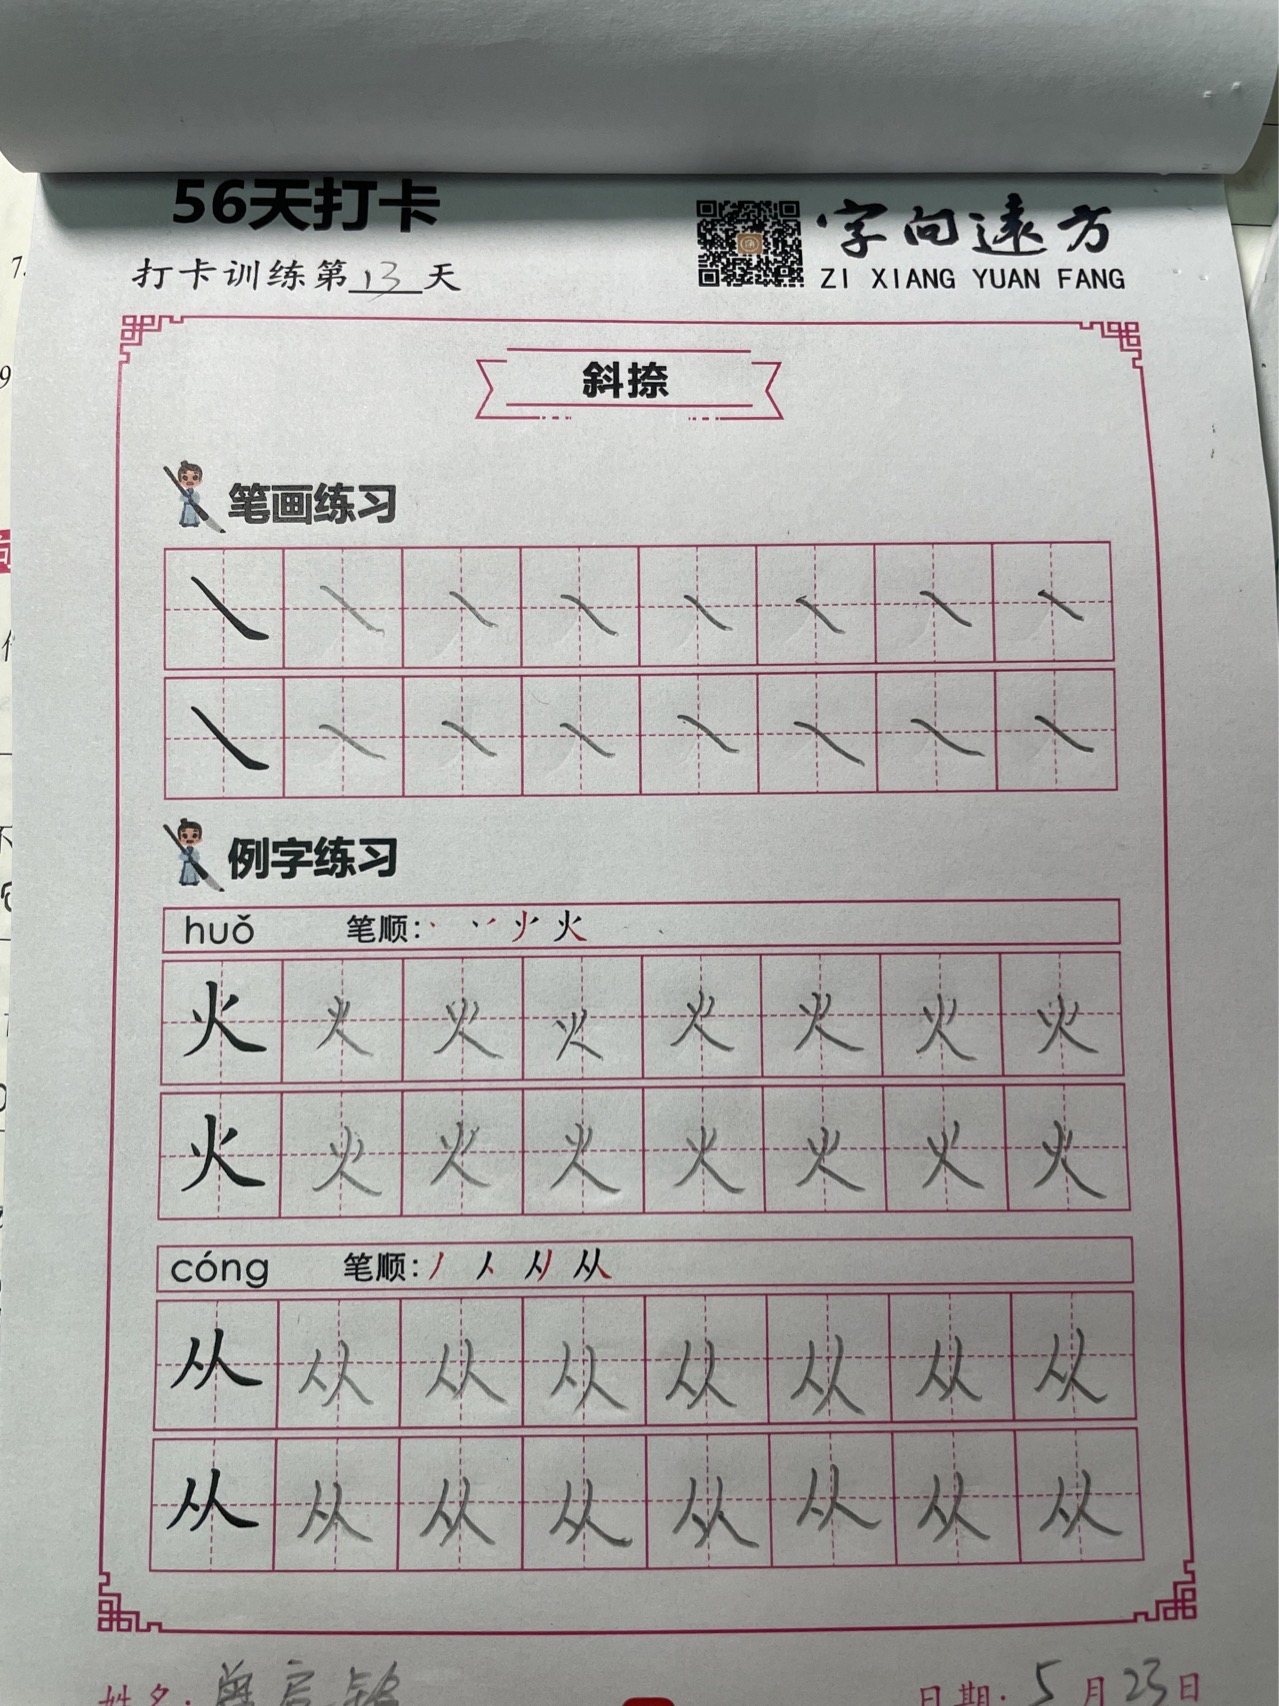 56天打卡
字向远方
打卡训练第13天
ZI XIANG YUAN FANG
斜捺
笔画练习
例字练习
huǒ 笔顺: 火
火 火 火 火 火 火 火 火
火 火 火 火 火 火 火 火
cóng 笔顺: 丿 人 从
从 从 从 从 从 从 从 从
从 从 从 从 从 从 从 从
姓名: 日期: 5月23日